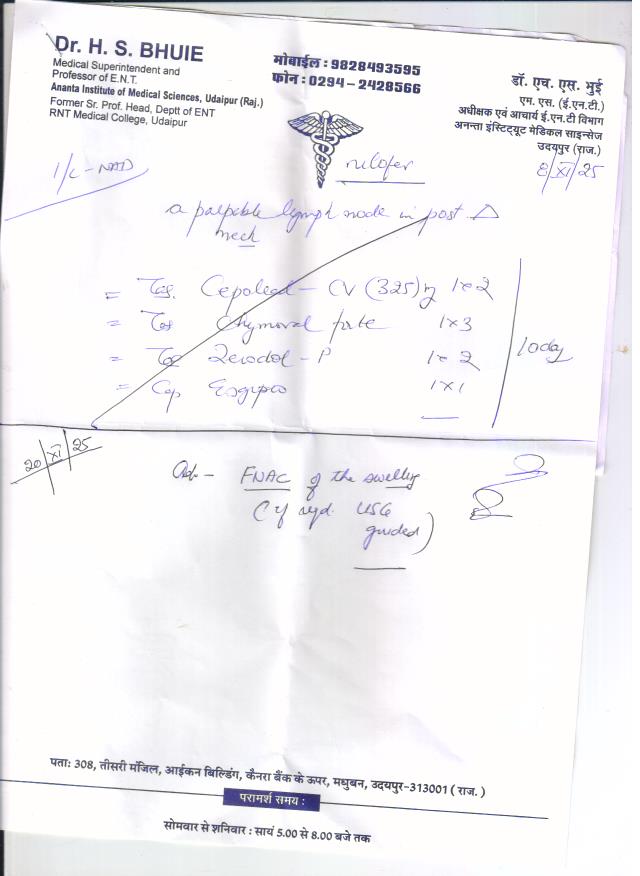 Dr. H. S. BHUIE
Medical Superintendent and
Professor of E.N.T.
Ananta Institute of Medical Sciences, Udaipur (Raj.)
Former Sr. Prof. Head, Deptt of ENT
RNT Medical College, Udaipur
मोबाईल : 9828493595
फोन : 0294 – 2428566
डॉ. एच. एस. भुई
एम. एस. (ई.एन.टी.)
अधीक्षक एवं आचार्य ई.एन.टी विभाग
अनन्ता इंस्टिट्यूट मेडिकल साइन्सेज
उदयपुर (राज.)
I/L - NAD
nilofer
8/XI/25
a palpable lymph node in post Δ
neck
= Tab. Cepodem - CV (325) 1x2
= Tab Chymoral forte 1x3
= Tab Zerodol - P 1x2
= Cap 1x1
10 day
20/XI/25
Adv - FNAC of the swelling
(If reqd. USG
guided)
पता: 308, तीसरी मंजिल, आईकन बिल्डिंग, कैनरा बैंक के ऊपर, मधुबन, उदयपुर-313001 ( राज. )
परामर्श समय :
सोमवार से शनिवार : सायं 5.00 से 8.00 बजे तक